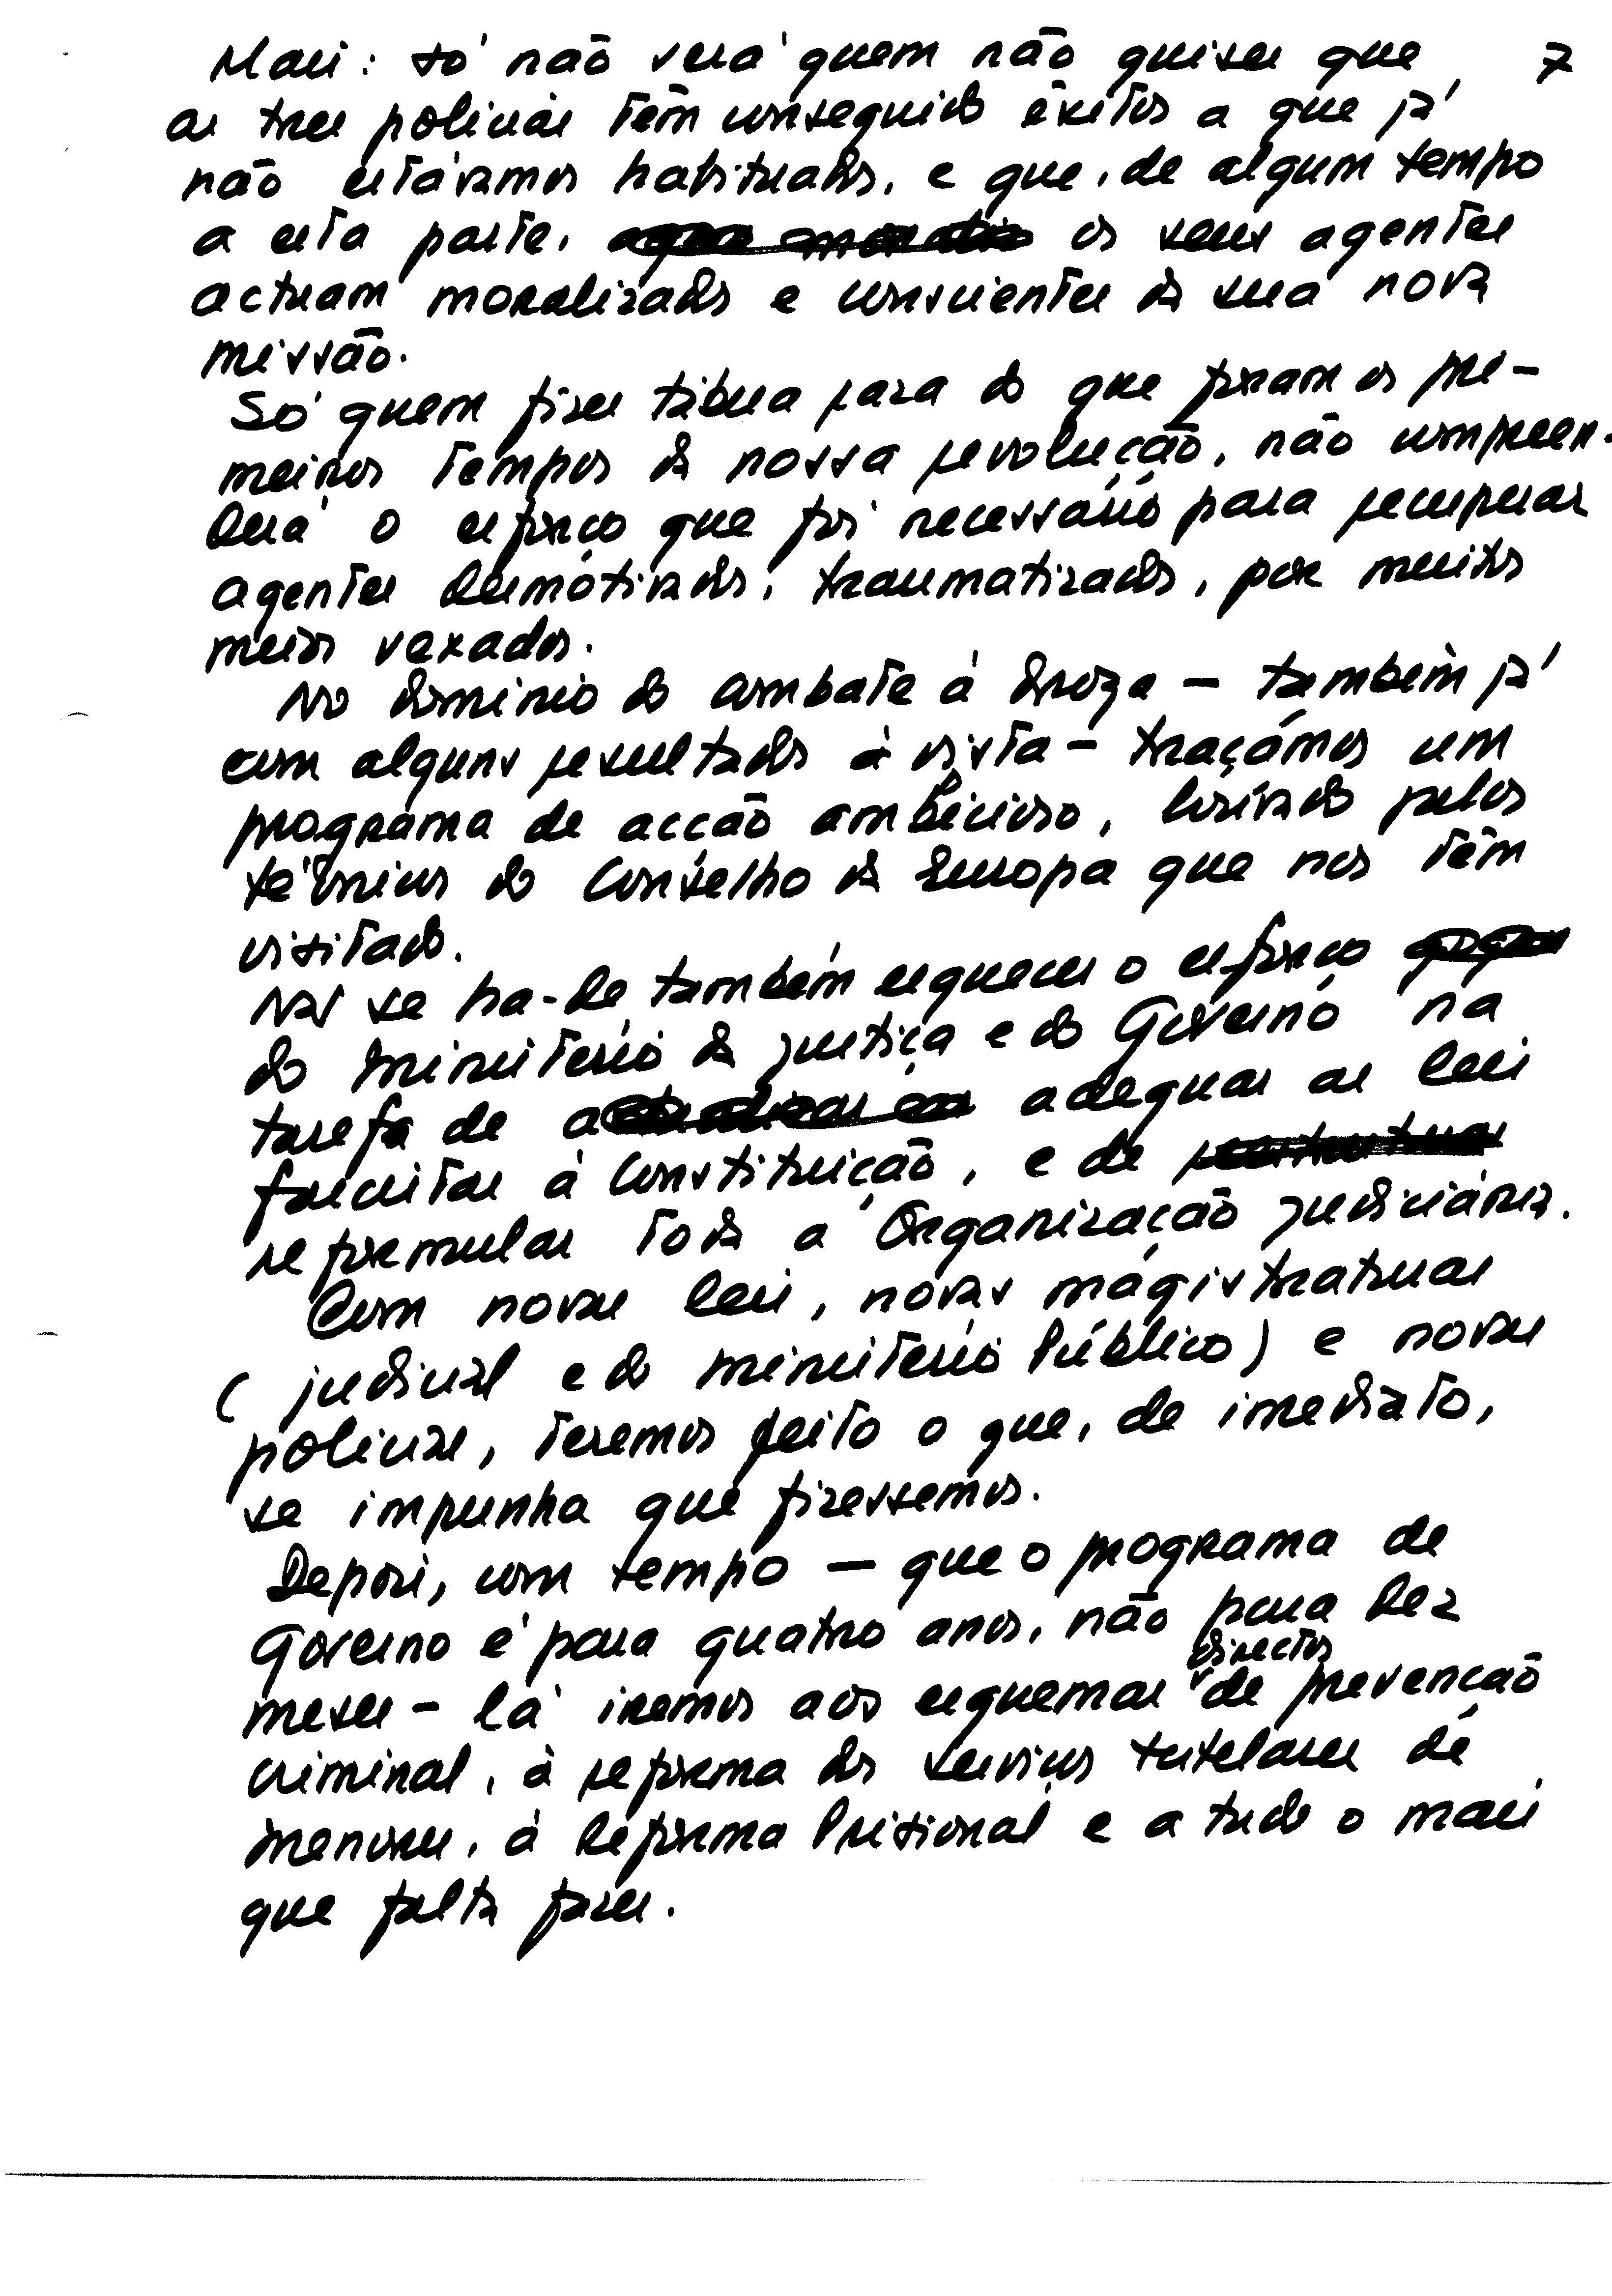 Mais: só não verá quem não quiser que 7
as tres policias têm conseguido êxitos a que já
não estávamos habituados, e que, de algum tempo
a esta parte, os seus agentes
actuam moralizados e conscientes da sua nova
missão.
Só quem fizer tábua rasa do que foram os pri-
meiros tempos da nossa revolução, não compreen-
derá o esforço que foi necessário para recuperar
agentes desmotivados, traumatizados, por muitos
meios vexados.
No dominio do combate à droga – também já
com alguns resultados à vista – traçámos um
programa de acção ambicioso, louvado pelos
técnicos do Conselho da Europa que nos têm
visitado.
Não se ha-de também esquecer o esforço
do Ministério da Justiça e do Governo na
tarefa de adequar as leis
fascistas à Constituição, e de
reformular toda a Organização Judiciária.
Com novas leis, novas magistraturas
(judicial e do Ministério Público) e novas
policias, teremos feito o que, de imediato,
se impunha que fizessemos.
Depois, com tempo – que o programa de
Governo é para quatro anos, não para dez
meses – lá iremos aos esquemas directos de prevenção
criminal, à reforma dos serviços tutelares de
menores, à Reforma Prisional e a tudo o mais
que falta fazer.